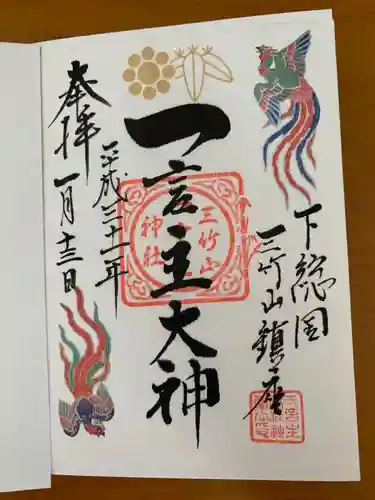 下総国
三竹山鎮座
一言主大神
三竹山
神社
奉拝
平成三十一年
一月十三日